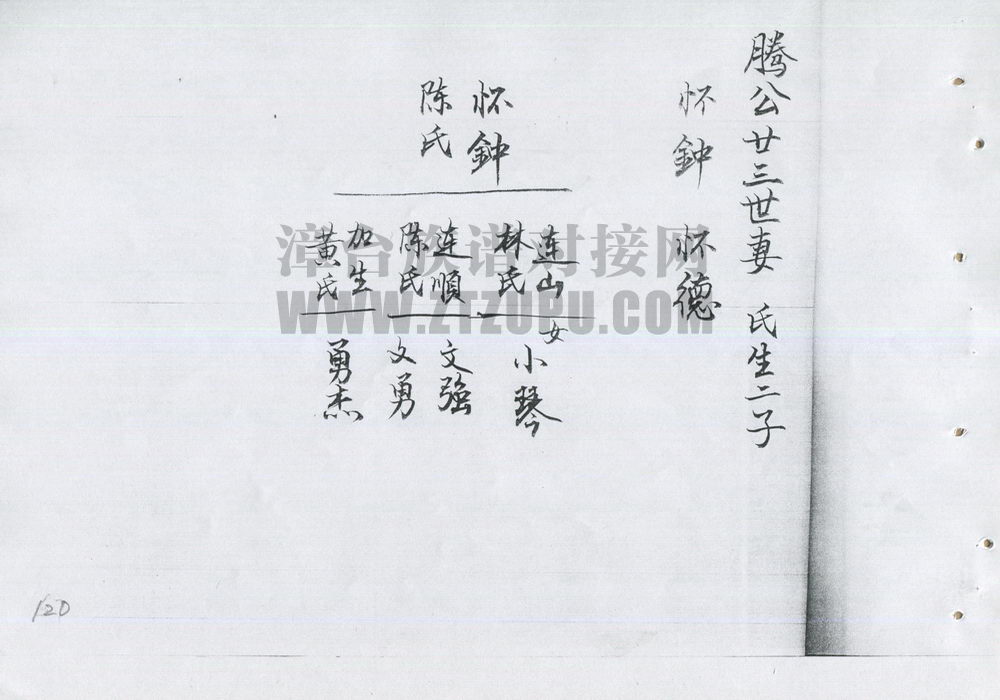 腾公廿三世妻 氏生二子
怀鈡 怀德
怀鈡
陈氏
连山
林氏
女小琴
连順
陈氏
文强
文勇
加生
黄氏
勇杰
漳台族谱对接网
WWW.ZTZUPU.COM
120